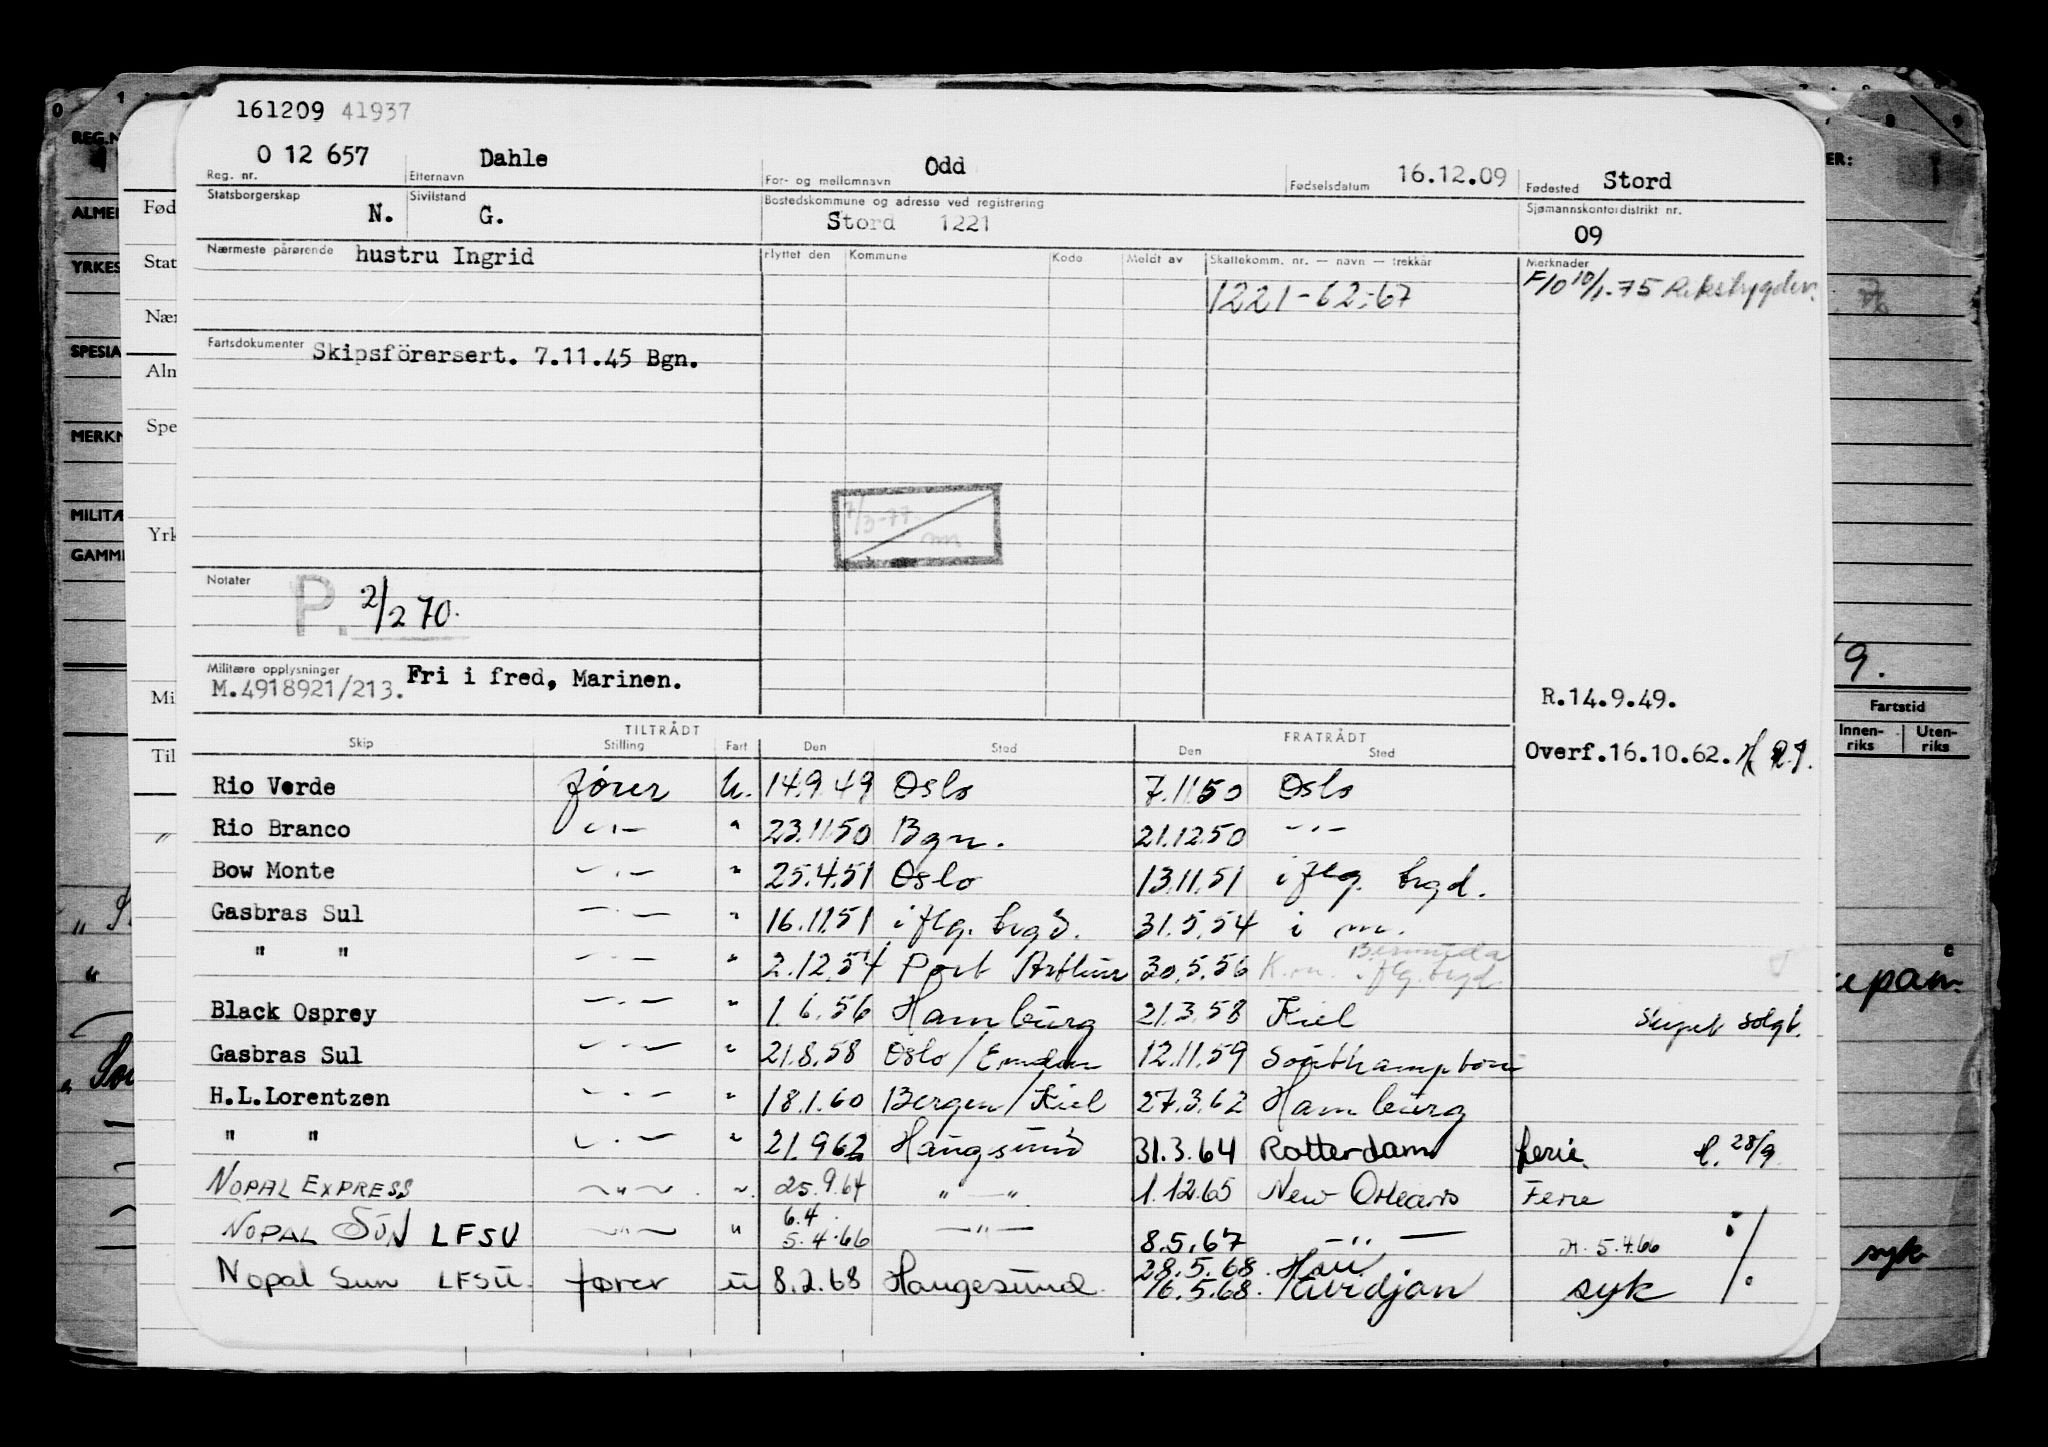 161209 41937
O 12 657 Dahle Odd 16.12.09 Stord
Reg. nr. Etternavn For- og mellomnavn Fødselsdatum Fødested
Statsborgerskap N. Sivilstand G. Bostedskommune og adresse ved registrering Sjømannskontordistrikt nr.
Stord 1221 09
Nærmeste pårørende hustru Ingrid Flyttet den Kommune Kode Meldt av Skattekomm. nr. — navn — trekkår Merknader
1221-62-67 F/O 10/1-75 Rikstrygdev.
Fartsdokumenter Skipsförersert. 7.11.45 Bgn.
7/3-77
m
Notater P. 2/2 70.
Militære opplysninger Fri i fred, Marinen.
M.4918921/213.
R.14.9.49.
TILTRÅDT FRATRÅDT
Skip Stilling Fart Den Sted Den Sted Overf.16.10.62.
Rio Verde fører U. 14.9.49 Oslo 7.11.50 Oslo
Rio Branco -"- " 23.11.50 Bgn. 21.12.50 -"-
Bow Monte -"- " 25.4.51 Oslo 13.11.51 i flg. brgd.
Gasbras Sul -"- " 16.11.51 i flg. brgd. 31.5.54 i m.
" " -"- " 2.12.54 Port Arthur 30.5.56 K.m. Bermuda i flg. brgd.
Black Osprey -"- " 1.6.56 Hamburg 21.3.58 Kiel Skipet solgt.
Gasbras Sul -"- " 21.8.58 Oslo/Emden 12.11.59 Southampton
H.L.Lorentzen -"- " 18.1.60 Bergen/Kiel 27.3.62 Hamburg
" " -"- " 21.9.62 Haugesund 31.3.64 Rotterdam ferie. H. 28/9
NOPAL EXPRESS -"- " 25.9.64 " — " 1.12.65 New Orleans Ferie
NOPAL SUN LFSU -"- " 6.4. 5.4.66 -"- 8.5.67 -"- H. 5.4.66 %
Nopal Sun LFSU. fører u 8.2.68 Haugesund 28.5.68. 16.5.68. syk
REG.N
ALMEN
YRKES
SPESIA
MERKN
MILITÆ
GAMM
Fød
Stat
Nær
Aln
Spe
Yrk
Mi
Til
ER:
9.
Fartstid
Innen-riks Uten-riks
syk